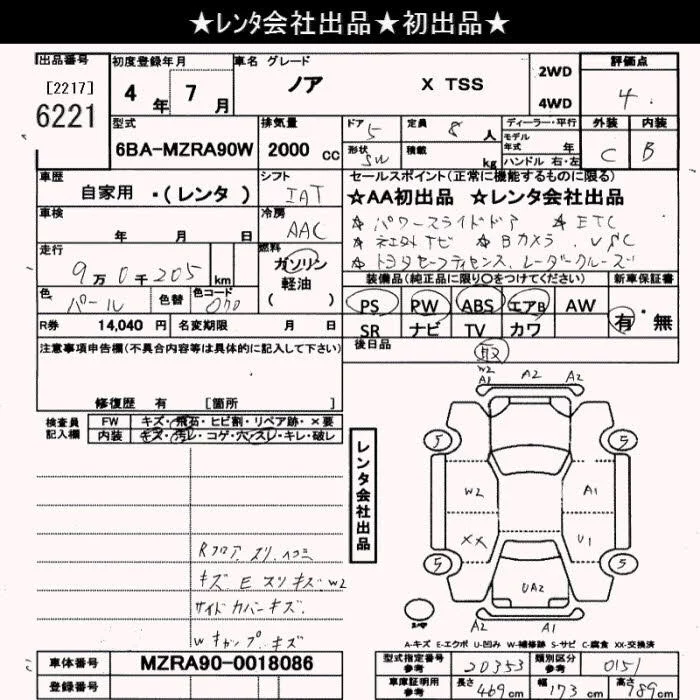 ★レンタ会社出品★初出品★
出品番号 初度登録年月 車名 グレード 評価点
[2217] 6221 4年 7月 ノア X TSS 2WD 4WD 4.
型式 排気量 ドア 5 定員 8人 ディーラー・平行 外装 内装
6BA-MZRA90W 2000cc 形状 SW 積載 kg モデル年式 年 ハンドル 右・左 C B
車歴 シフト セールスポイント(正常に機能するものに限る)
自家用 ・(レンタ) IAT ☆AA初出品 ☆レンタ会社出品
車検 年 月 日 冷房 AAC ☆パワースライドドア ☆ETC
☆ネ土外ナビ ☆Bカメラ. VSC
走行 9万0千205 km 燃料 ガソリン 軽油 ( ) ☆トヨタセーフティセンス. レーダークルーズ
装備品(純正品に限り○をつけてください) 新車保証書
色 パール 色替 色コード 070 PS PW ABS エアB AW 有・無
R券 14,040 円 名変期限 月 日 SR ナビ TV カワ
注意事項申告欄(不具合内容等は具体的に記入して下さい) 後日品 取
修復歴 有 [箇所 ]
検査員記入欄 FW キズ・飛石・ヒビ割・リペア跡・×要
内装 キズ・汚レ・コゲ・穴・スレ・キレ・破レ
レンタ会社出品
W2 A1 A2 A2
5 5
W2 A1
XX U1
5 5
UA2
A2 A1
Rフロア. スリ. ヘコミ
キズ E スリキズ W2
サイドカバーキズ.
Wキャップ. キズ
A-キズ E-エクボ U-凹み W-補修跡 S-サビ C-腐食 XX-交換済
車体番号 MZRA90-0018086 型式指定番号 参考 20353 類別区分 参考 0151
登録番号 車庫証明用 参考 長さ 469 cm 幅 173 cm 高さ 189 cm